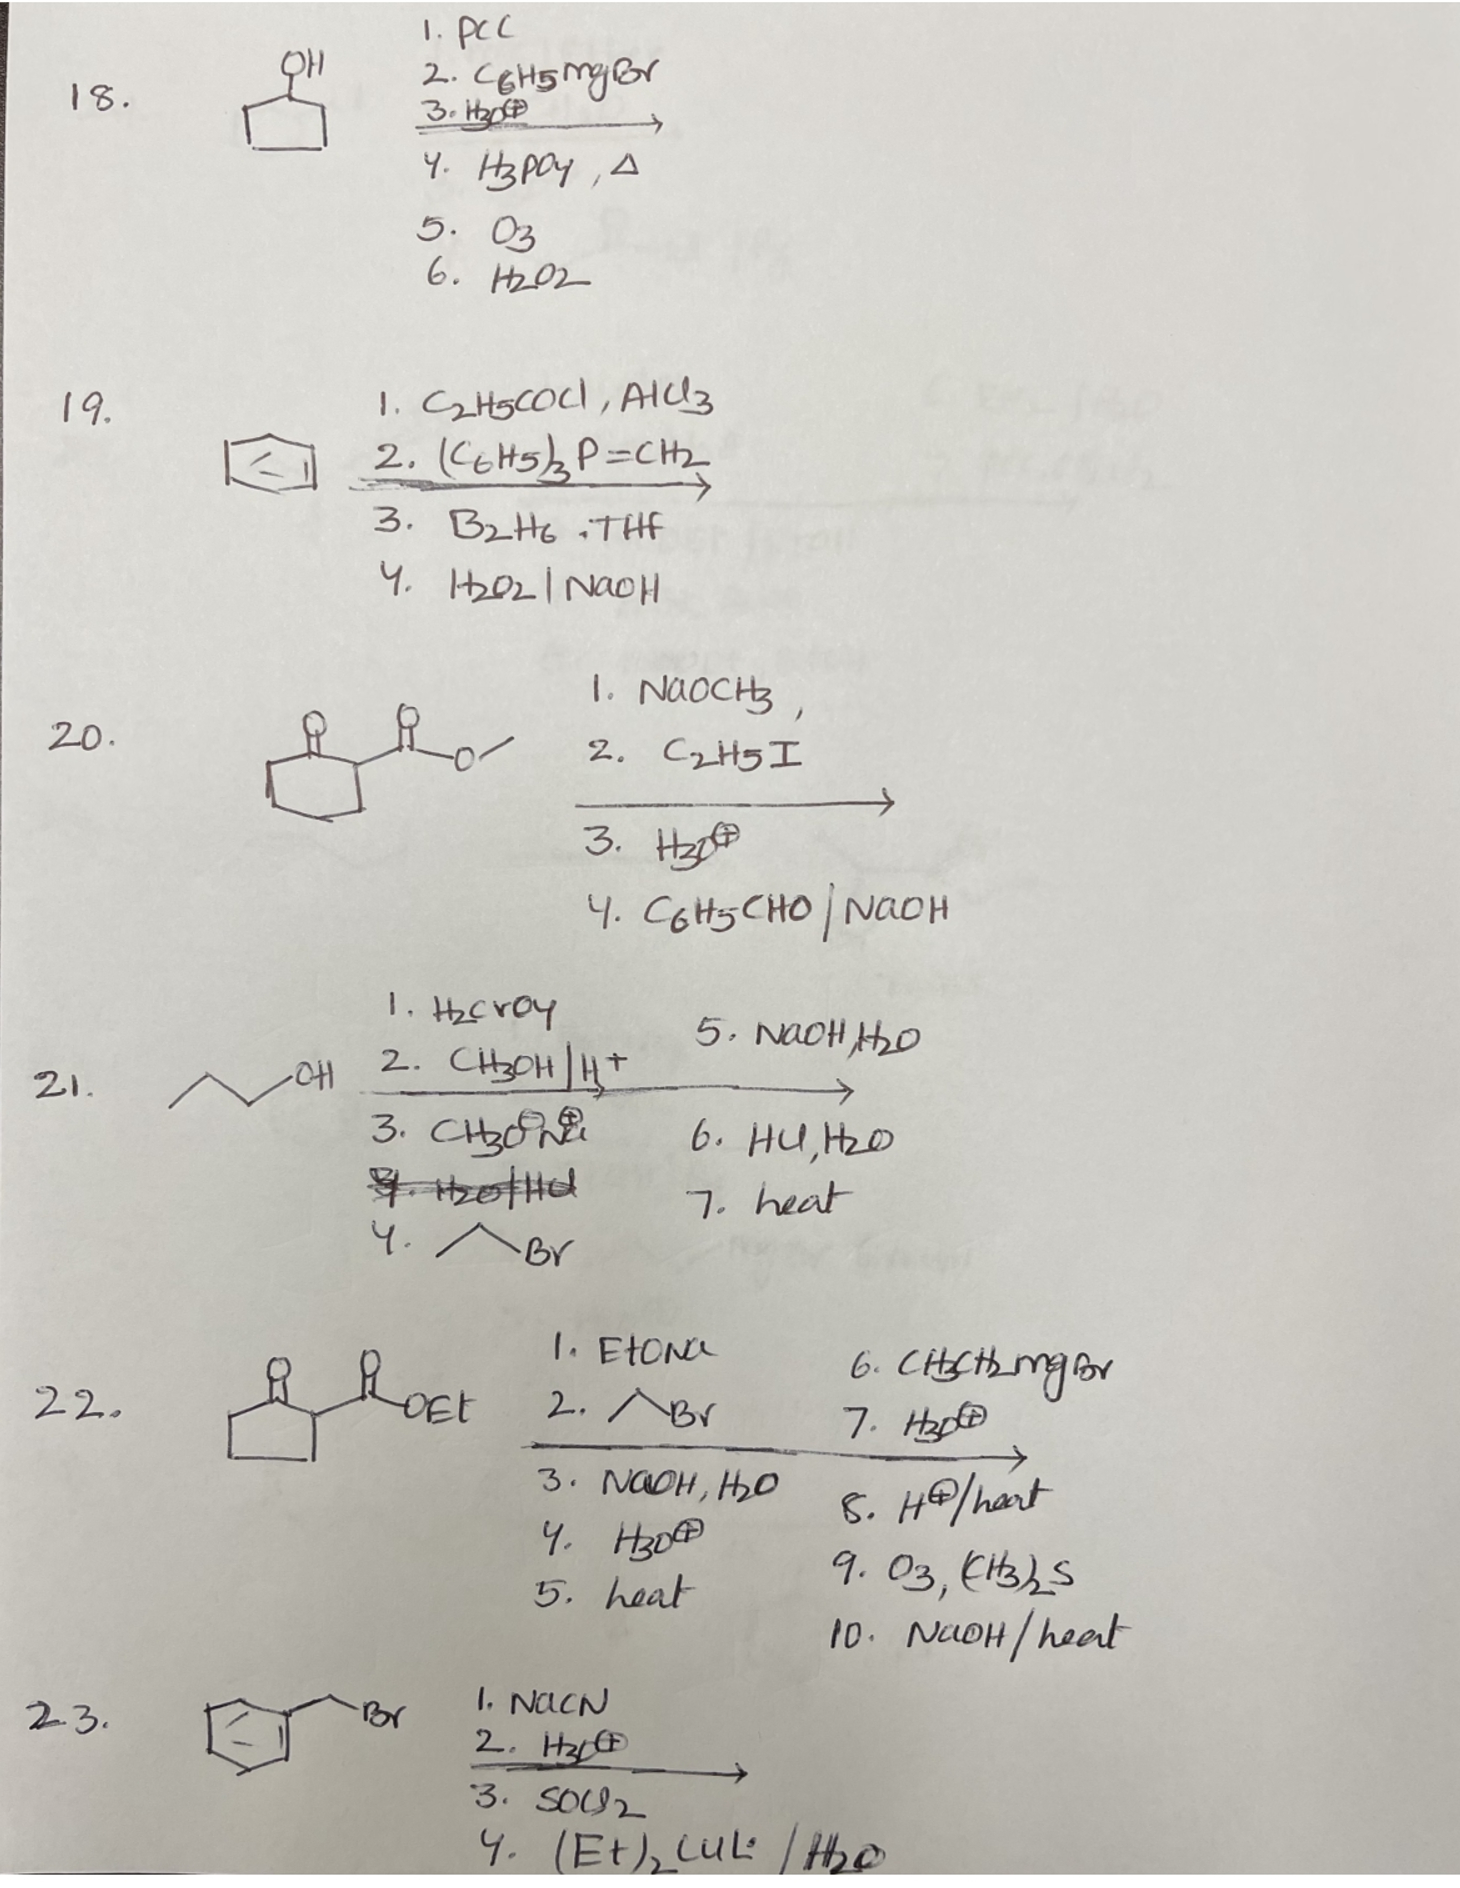 18.
OH
1. PCC
2. C6H5MgBr
3. H3O⊕
4. H3PO4, Δ
5. O3
6. H2O2
19.
1. C2H5COCl, AlCl3
2. (C6H5)3P=CH2
3. B2H6 . THF
4. H2O2 | NaOH
20.
O O
O
1. NaOCH3,
2. C2H5I
3. H3O⊕
4. C6H5CHO / NaOH
21.
OH
1. H2CrO4
2. CH3OH | H+
3. CH3O⊖Na⊕
4. H2O/HCl
4. Br
5. NaOH, H2O
6. HCl, H2O
7. heat
22.
O O
OEt
1. EtONa
2. Br
3. NaOH, H2O
4. H3O⊕
5. heat
6. CH3CH2MgBr
7. H3O⊕
8. H⊕/heat
9. O3, (CH3)2S
10. NaOH / heat
23.
Br
1. NaCN
2. H3O⊕
3. SOCl2
4. (Et)2CuLi / H2O